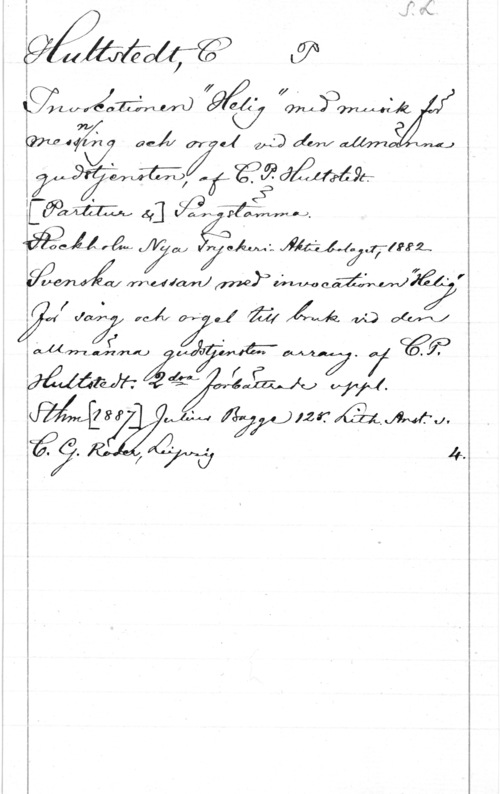 S. L.
Hultstedt, C P
Invocationen "Helig" med musik för
messning och orgel vid den allmänna
gudstjensten, af C. P. Hultstedt.
[Partitur &] Sångstämma.
Stockholm Nya Tryckeri-Aktiebolaget, 1882
Svenska messan med invocationen "Helig"
för sång och orgel till bruk vid den
allmänna gudstjensten arrang. af C. P.
Hultstedt. 2dra förbättrade uppl.
Sthm [1887] Julius Bagge 125. Lith. Anst. v.
C. G. Röder, Leipzig 4.